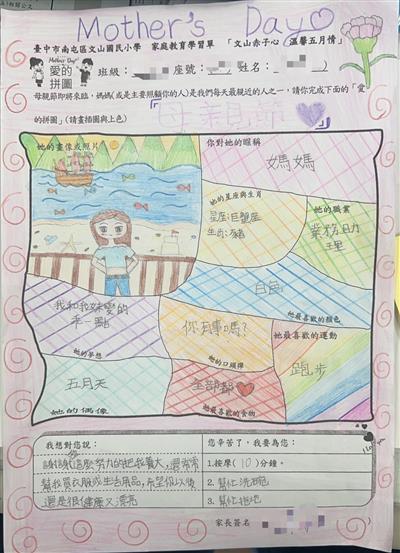 Mother's Day
臺中市南屯區文山國民小學 家庭教育學習單 「文山赤子心 溫馨五月情」
Mother's Day
愛的
拼圖
班級： 座號： 姓名：
母親節即將來臨，媽媽(或是主要照顧你的人)是我們每天最親近的人之一，請你完成下面的「愛
的拼圖」(請畫插圖與上色)
母親節
她的畫像或照片
你對她的暱稱
媽媽
她的星座與生肖
星座：巨蟹座
生肖：豬
她的職業
業務助
理
白色
她最喜歡的顏色
我和我妹變的
乖一點
她的夢想
你有事嗎？
她的口頭禪
她最喜歡的運動
跑步
五月天
她的偶像
全部都
她最喜歡的食物
我想對您說：
謝謝您這麼努力的把我養大，還常常
幫我買衣服或生活用品，希望您以後
還是很健康又漂亮
您辛苦了，我要為您：
1.按摩(10)分鐘。
2.幫忙洗碗
3.幫忙拖地
家長簽名